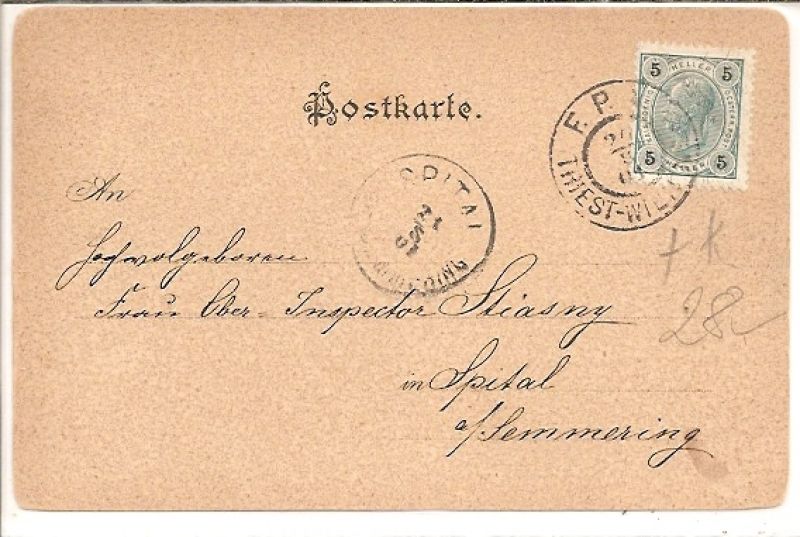 Postkarte.
5 HELLER 5
5 HELLER 5
F. P.
TRIEST-WIEN
SPITAL
An
Hochwolgeboren
Frau Ober-Inspector Stiasny
in Spital
a/Semmering
28